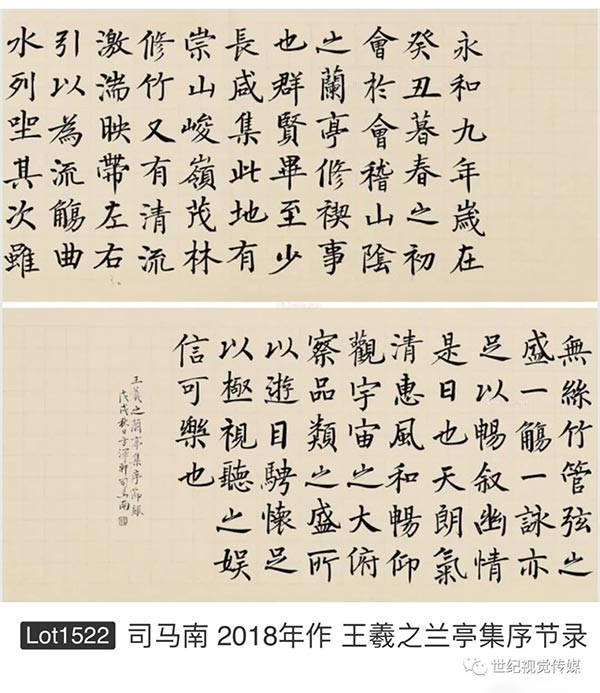 永和九年歲在
癸丑暮春之初
會於會稽山陰
之蘭亭修禊事
也群賢畢至少
長咸集此地有
崇山峻嶺茂林
修竹又有清流
激湍映帶左右
引以為流觴曲
水列坐其次雖
無絲竹管弦之
盛一觴一詠亦
足以暢叙幽情
是日也天朗氣
清惠風和暢仰
觀宇宙之大俯
察品類之盛所
以遊目騁懷足
以極視聽之娱
信可樂也
王羲之蘭亭集序節録
戊戌秋日澤軒司馬南
Lot1522 司马南 2018年作 王羲之兰亭集序节录
世纪视觉传媒